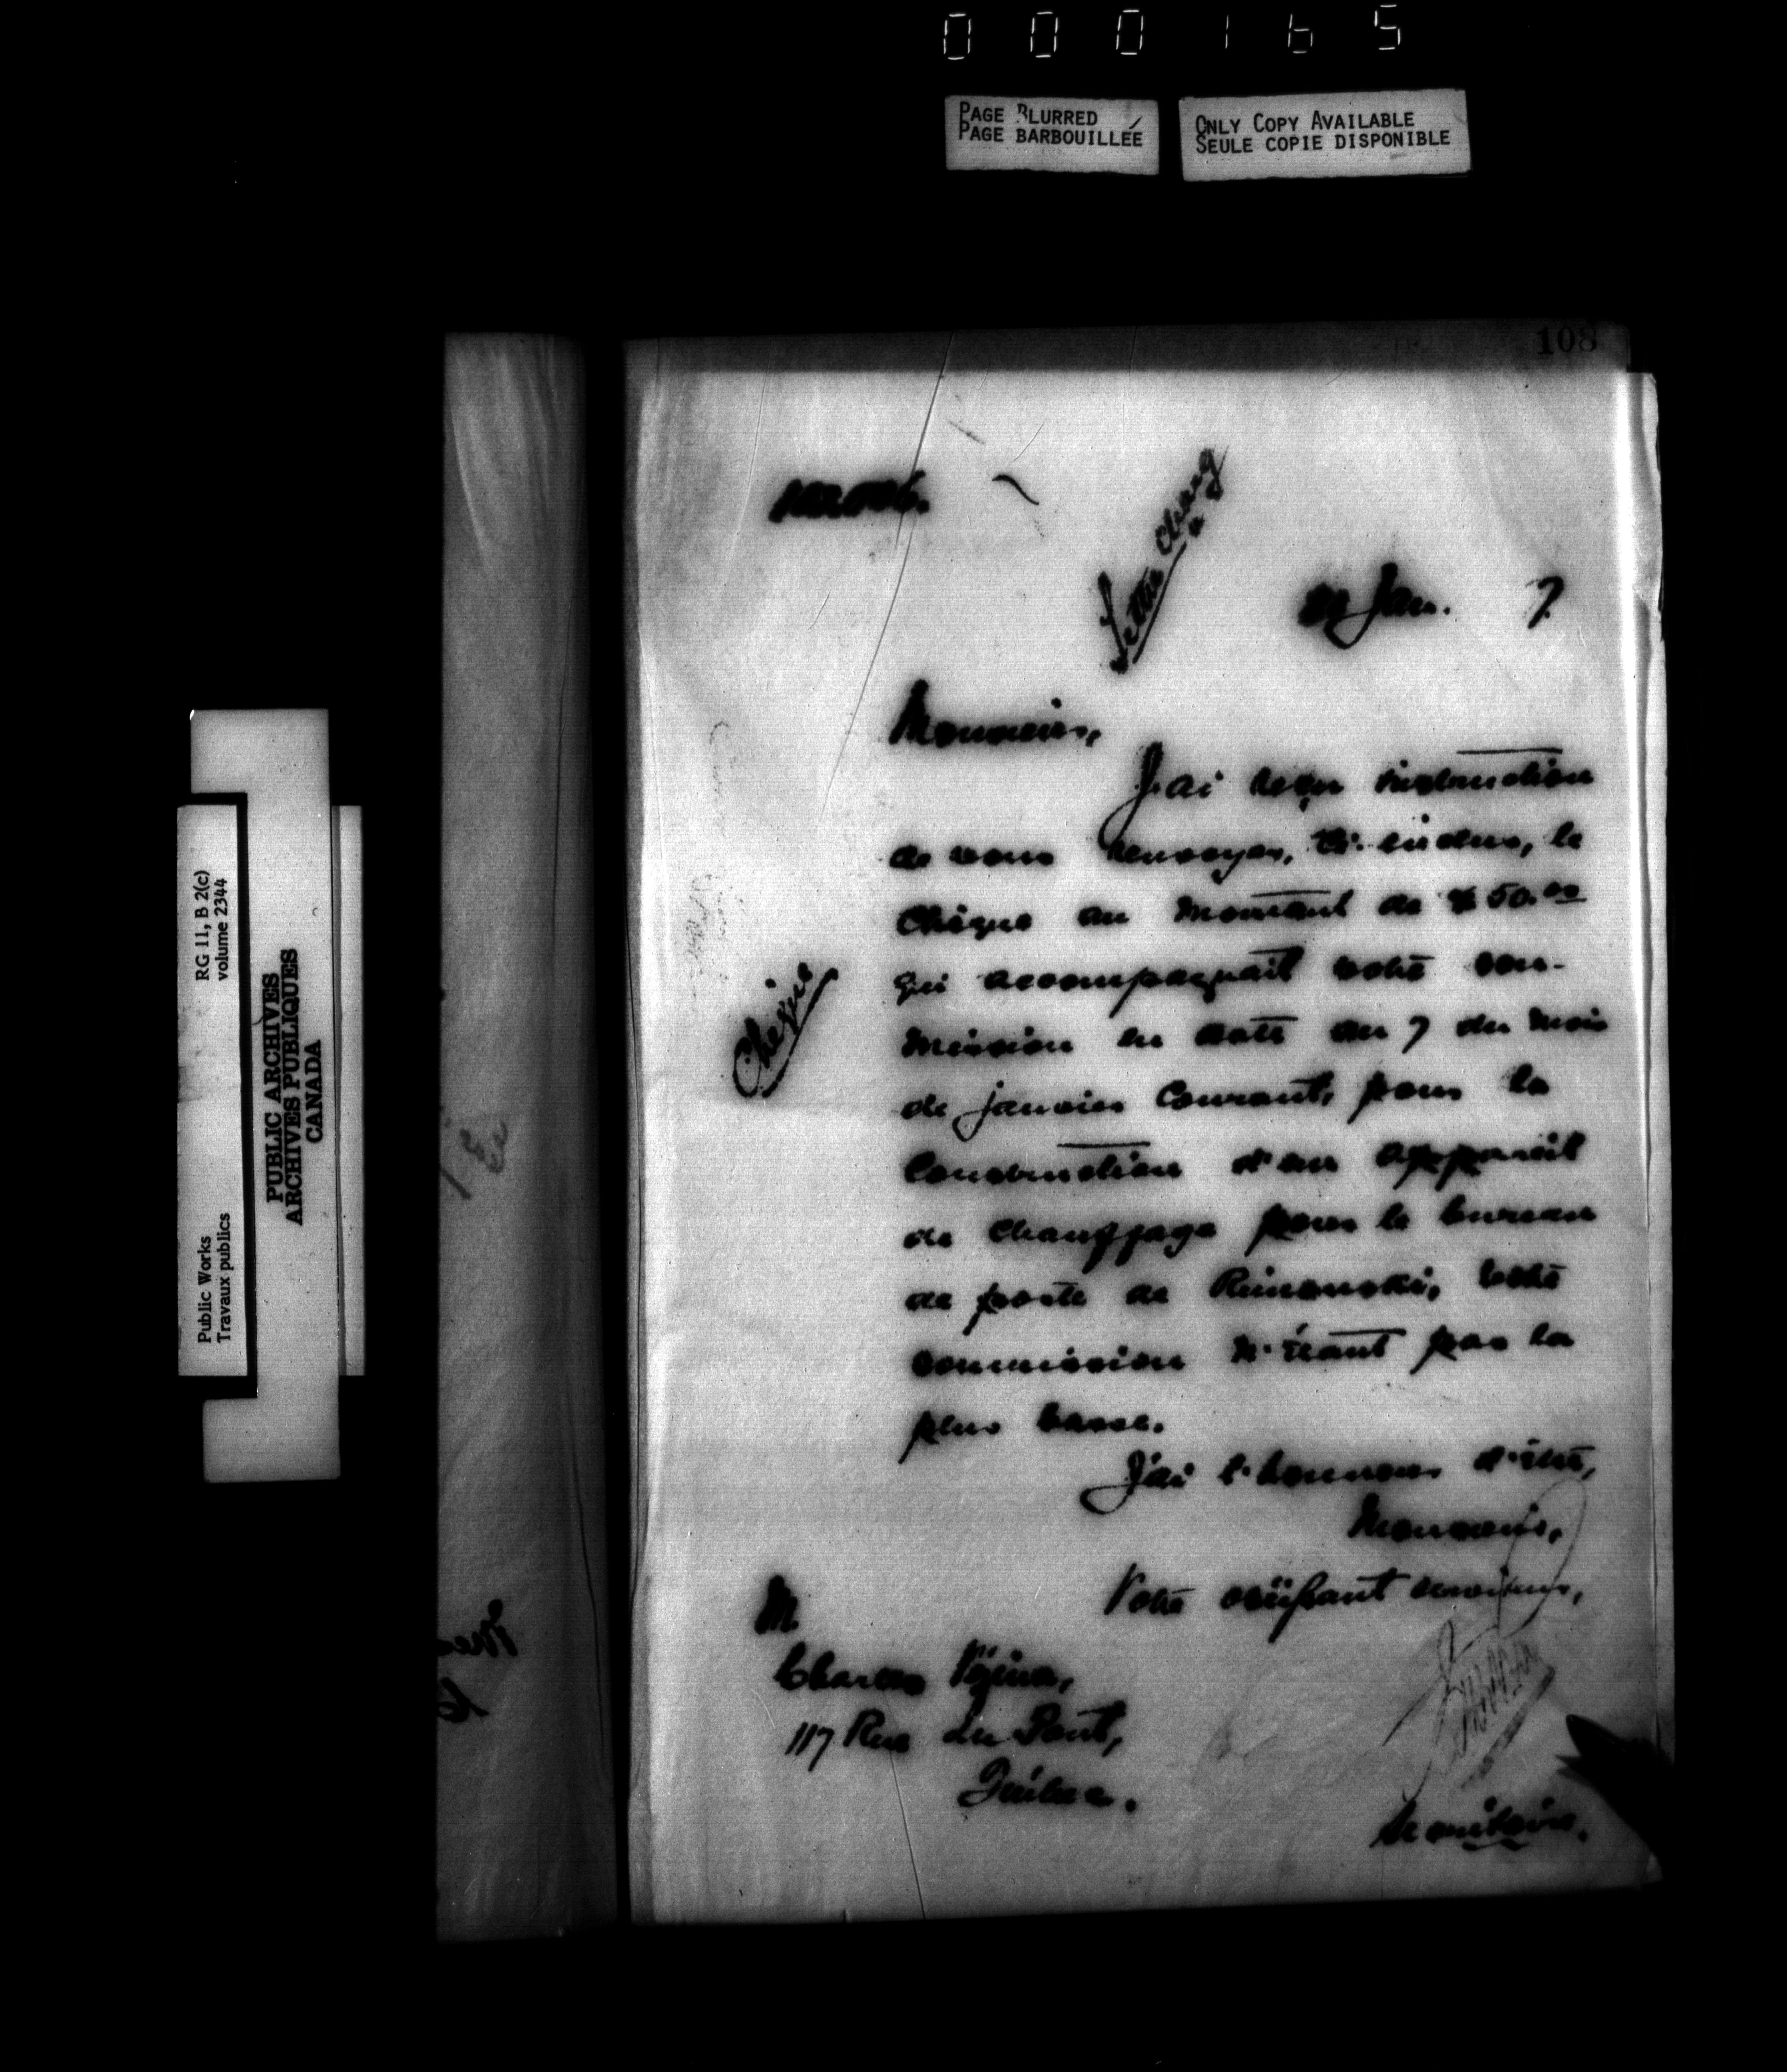 000165
PAGE BLURRED
PAGE BARBOUILLÉE
ONLY COPY AVAILABLE
SEULE COPIE DISPONIBLE
108
Jan. 7.
Monsieur,
J'ai reçu instruction
de vous renvoyer, ci-inclus, le
Chèque au montant de $50.00
qui accompagnait votre sou-
mission en date du 7 du mois
de janvier Courant, pour la
Construction d'un appareil
de chauffage pour le bureau
de poste de Rimouski, votre
soumission n'étant pas la
plus basse.
Chèque
J'ai l'honneur d'être,
Monsieur,
Votre obéissant serviteur,
Secrétaire.
M.
Charles Vézina,
117 Rue du Pont,
Québec.
Public Works
Travaux publics
RG 11, B 2(c)
volume 2344
PUBLIC ARCHIVES
ARCHIVES PUBLIQUES
CANADA